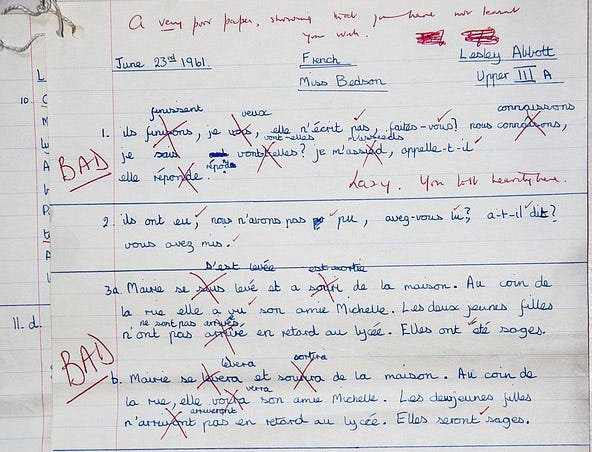 A very poor paper, showing that you have not learnt
your work.
June 23rd 1961. French Lesley Abbott
Miss Bedson Upper III A
finissent veux connaissons
1. ils finirons, je vois, elle n'écrit pas, faites-vous? nous connaisons,
vont-elles m'assieds
je sais vont-elles? je m'assied, appelle-t-il
BAD
répond
elle réponde. Lazy. You lost heavily here.
2. ils ont eu, nous n'avons pas pu, avez-vous lu? a-t-il dit?
vous avez mis.
s'est levée est sortie
3a. Mairie se sous levé et a souri de la maison. Au coin de
la rue elle a vu son amie Michelle. Les deux jeunes filles
ne sont pas arrivés
n'ont pas arrivé en retard au lycée. Elles ont été sages.
BAD
lèvera sortira
b. Mairie se levera et de la maison. Au coin de
verra
la rue, elle voira son amie Michelle. Les deux jeunes filles
arriveront
pas en retard au lycée. Elles seront sages.
10.
11. d.